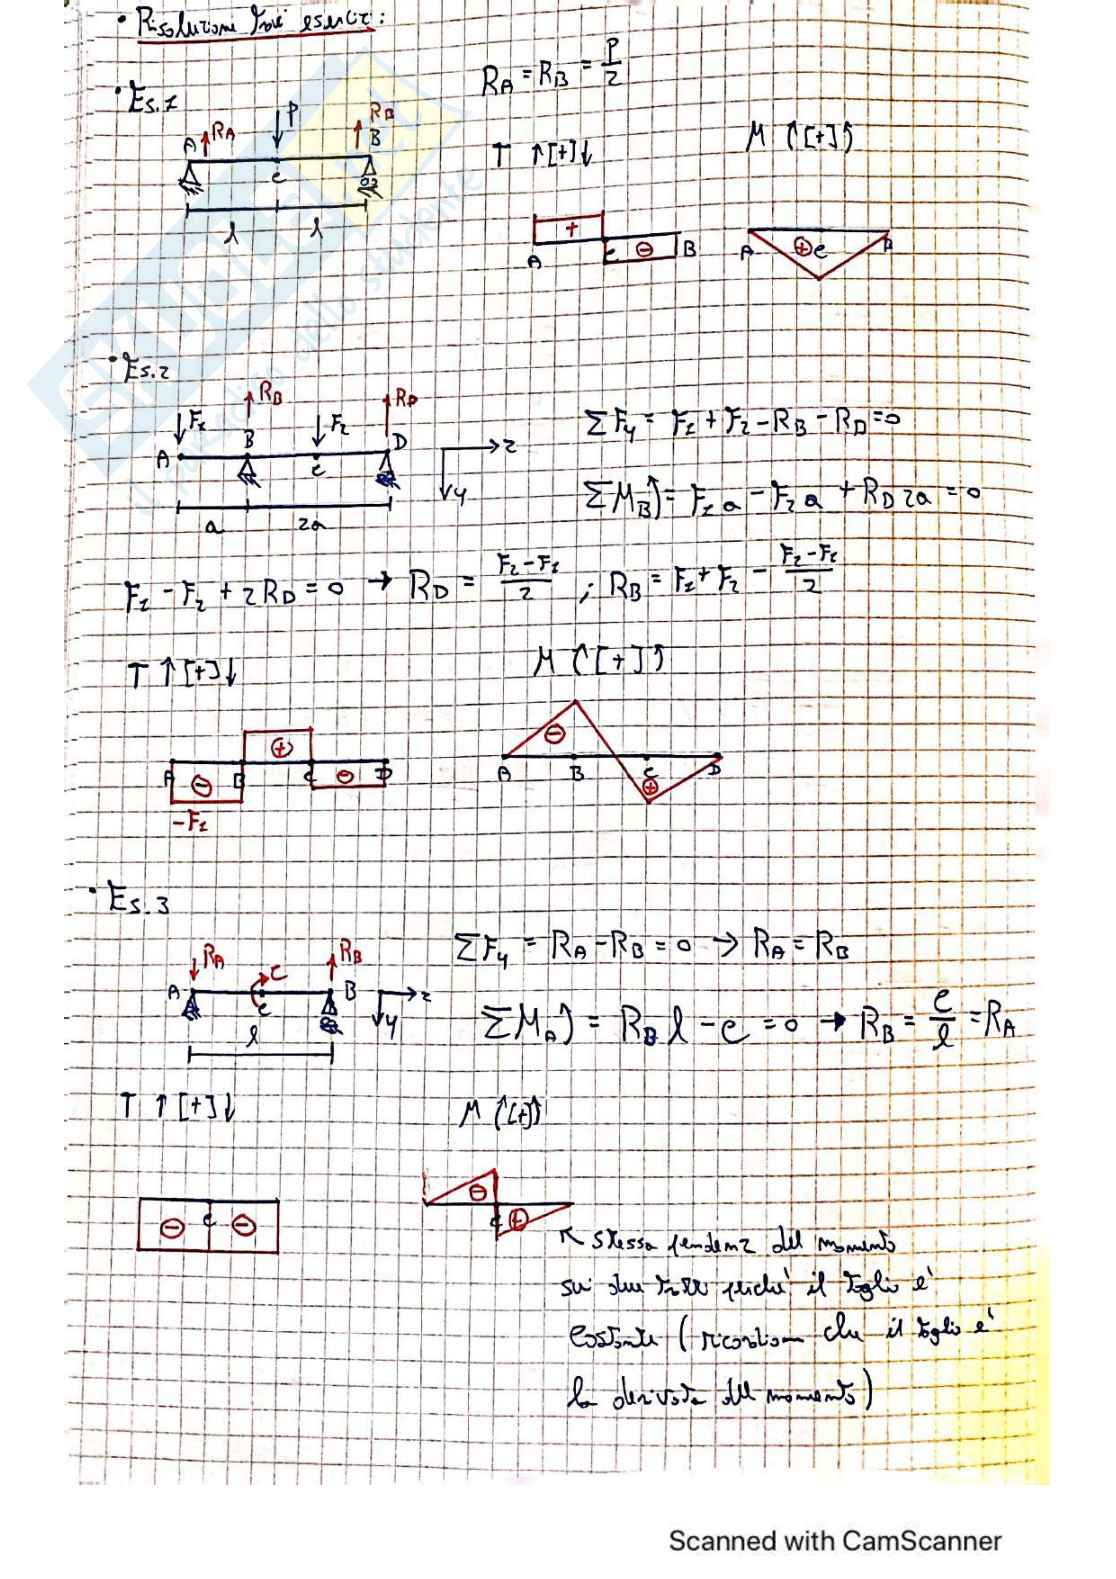 • Risoluzione esercizi:
• Es.1
R_A = R_B = P/2
A R_A P R_B B
C
l l
T ↑[+]↓ M (↑[+]↑)
+ ⊖ A C B
A ⊕ C B
• Es.2
F_1 R_B F_2 R_D
A B C D z
y
a 2a
ΣF_y = F_1 + F_2 - R_B - R_D = 0
ΣM_B) = F_1 a - F_2 a + R_D 2a = 0
F_1 - F_2 + 2R_D = 0 → R_D = (F_2 - F_1)/2 ; R_B = F_1 + F_2 - (F_2 - F_1)/2
T ↑[+]↓ M (↑[+]↑)
A ⊖ B ⊕ C ⊖ D
-F_1
⊖ A B C D ⊕
• Es.3
R_A C R_B
A C B z
y
l
ΣF_y = R_A - R_B = 0 → R_A = R_B
ΣM_A) = R_B l - C = 0 → R_B = C/l = R_A
T ↑[+]↓ M (↑[+]↑)
⊖ C ⊖
⊖ C ⊕
↖ stessa pendenz del momento
sui due tratti perché il taglio è
costante (ricordiam che il taglio è
la derivata del momento)
Scanned with CamScanner